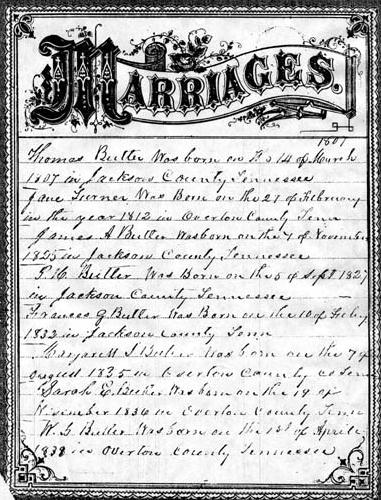 MARRIAGES.
1807
Thomas Butler Was born on the 14 of March
1807 in Jackson County Tennessee
Jane Turner Was Born on the 27 of February
in the year 1812 in Overton County Tenn
James A Butler Was born on the 7 of November
1825 in Jackson County Tennessee
Butler Was Born on the 5 of Sept 1827
in Jackson County Tennessee
Frances G Butler Was Born on the 10 of Feby
1832 in Jackson County Tenn
Margarett Butler Was born on the 7 of
August 1835 in Overton County Tenn
Sarah E Butler Was born on the 19 of
November 1836 in Overton County Tenn
W. G. Butler Was born on the 1st of Aprile
1838 in Overton County Tennessee